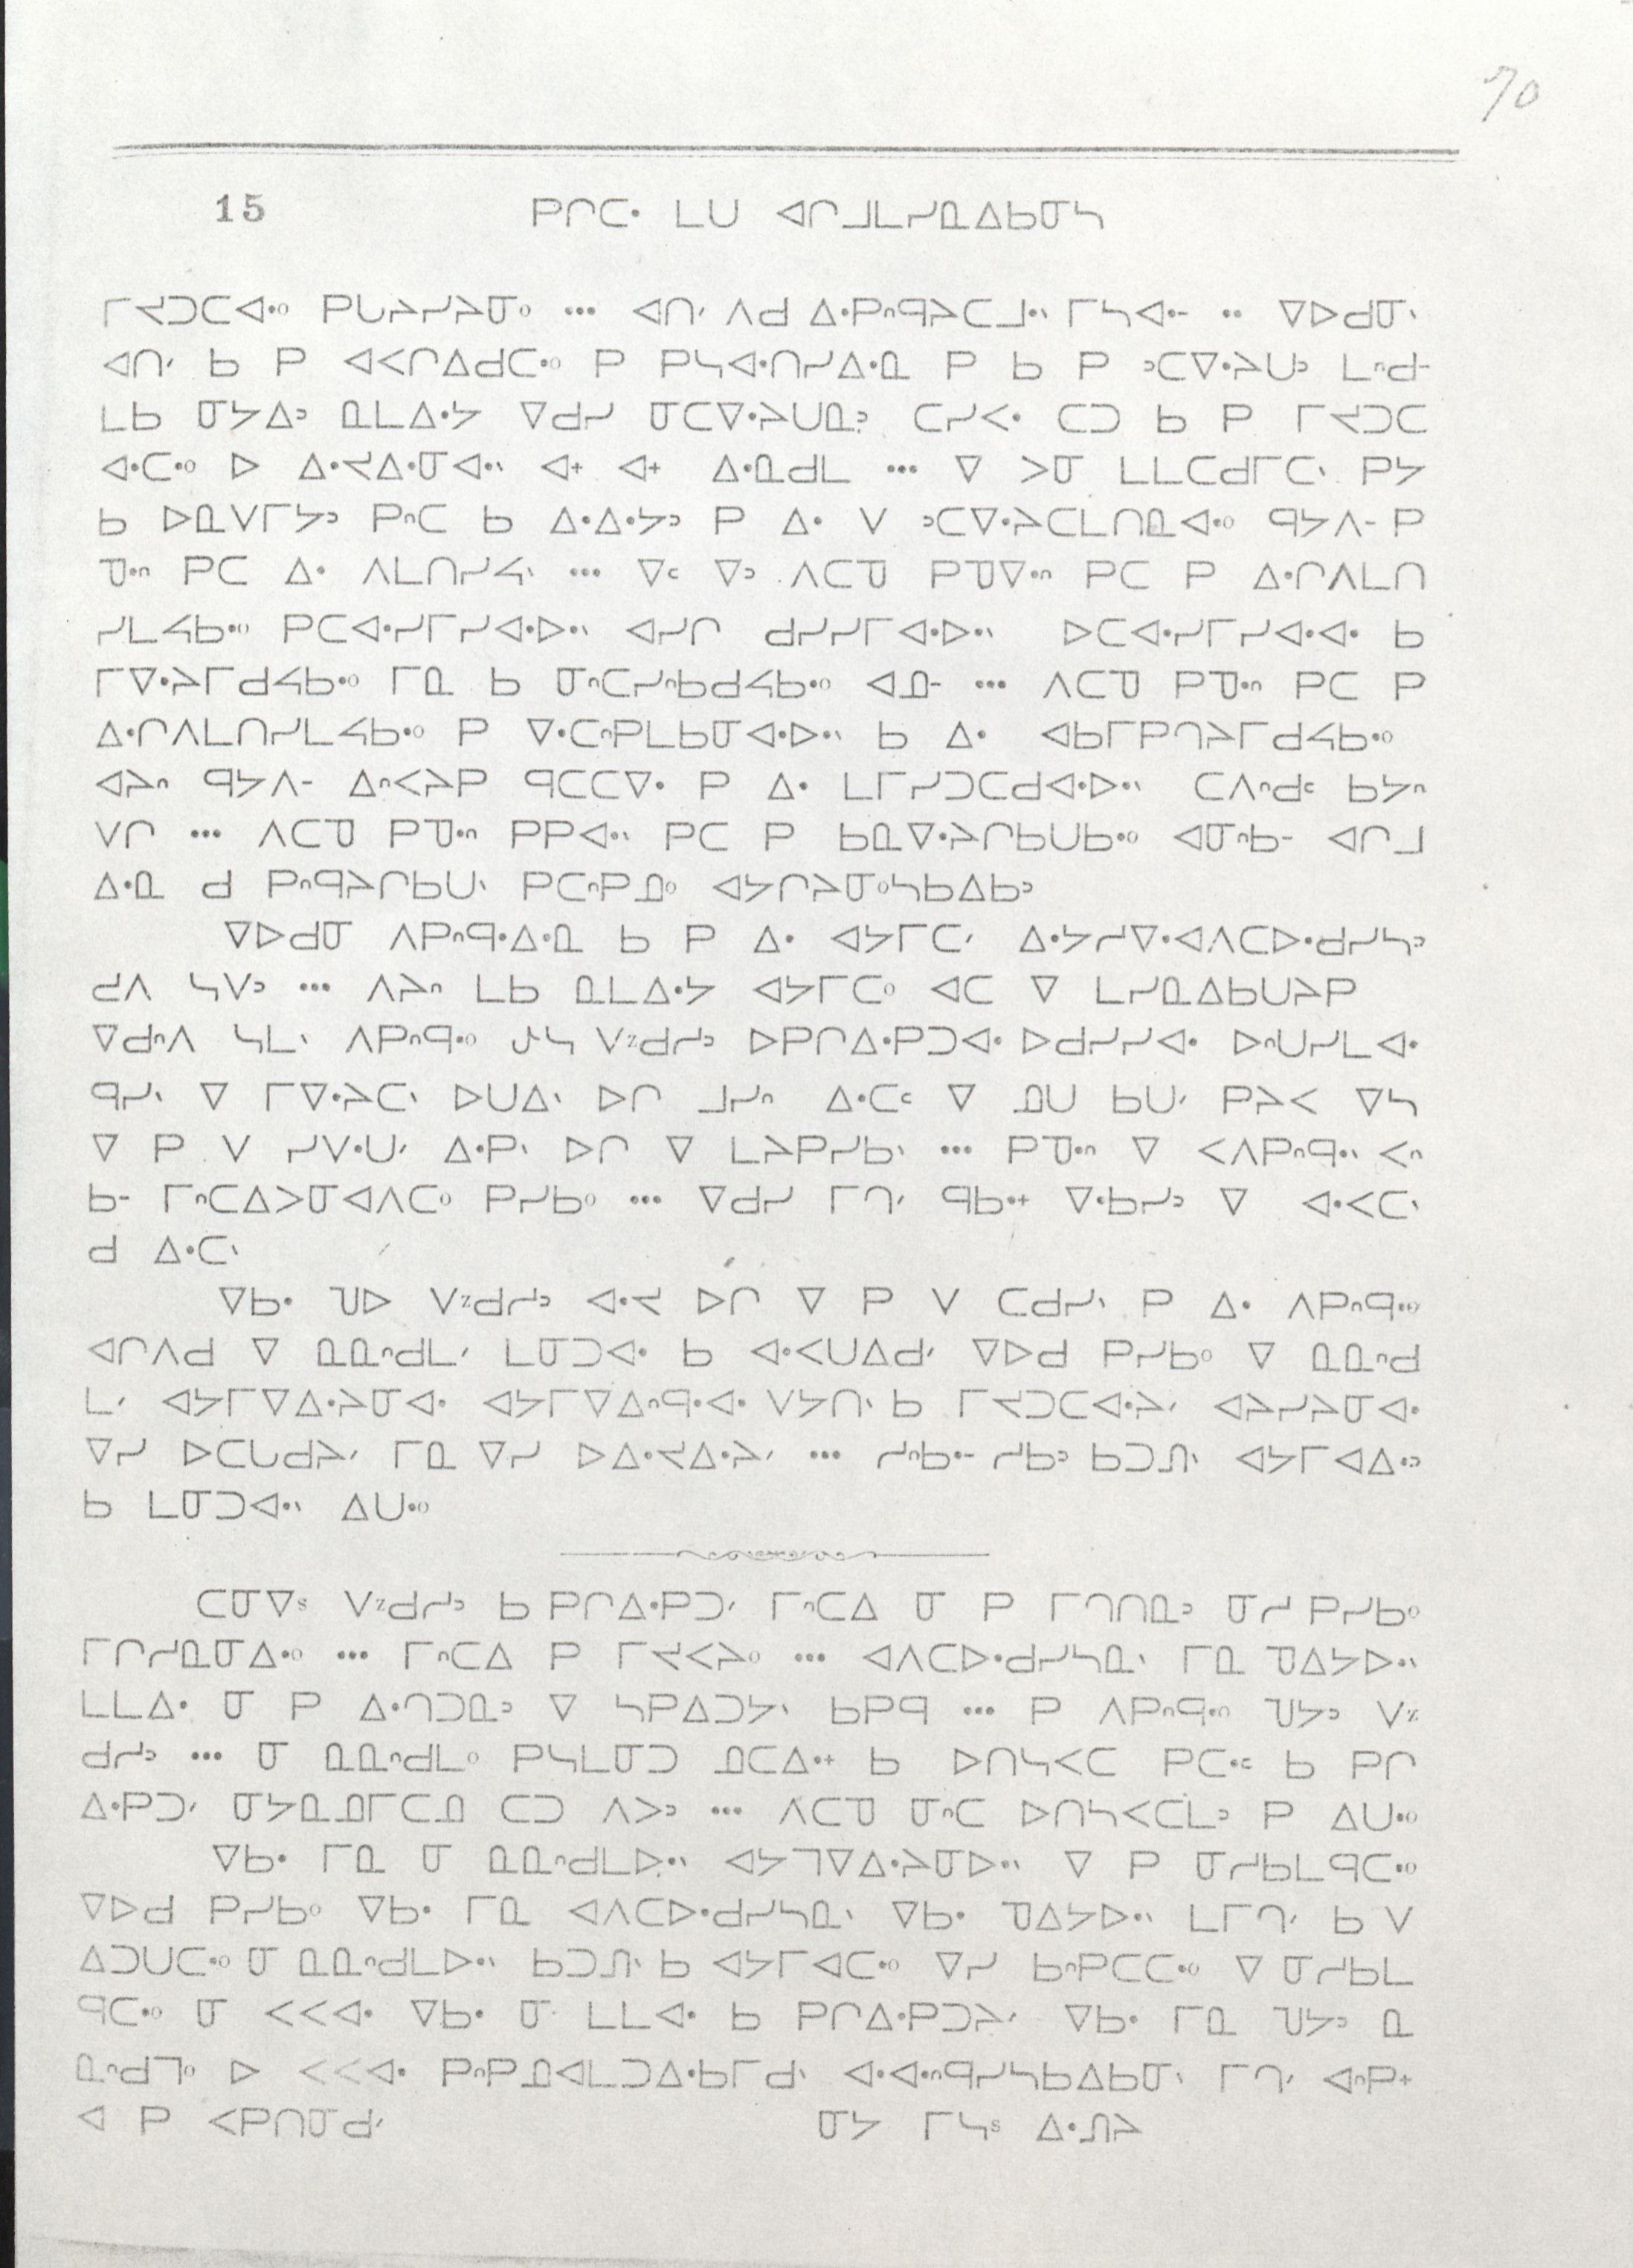 15 ᑭᒋᑕᐧ ᒪᑌ ᐊᒋᒧᒪᓯᓇᐃᑲᓂᓴ
ᒥᔪᑐᑕᐊᐧᐤ ᑭᓭᔨᓯᔨᓂᐤ ... ᐊᑎᐟ ᐱᑯ ᐃᐧᑭᐢᑫᔨᑕᒧᐧᐠ ᒥᓴᐊᐧᐨ .. ᐁᐅᑯᓂᐠ
ᐊᑎᐟ ᑲ ᑭ ᐊᐸᒋᐃᑯᑕᐧᐤ ᑭ ᑭᓴᐊᐧᑎᓯᐃᐧᓇ ᑭ ᑲ ᑭ ᐣᑕᐁᐧᔨᑌᐣ ᒪᐢᑯᐨ
ᒪᑲ ᓂᔭᐃᐣ ᓇᒪᐃᐧᔭ ᐁᑯᓯ ᓂᑕᐁᐧᔨᑌᓇᐣ ᑕᓯᐸᐧ ᑕᑐ ᑲ ᑭ ᒥᔪᑐᑕ
ᐊᐧᑕᐧᐤ ᐅ ᐃᐧᒍᐃᐧᓂᐊᐧᐠ ᐊᐩ ᐊᐩ ᐃᐧᓇᑯᒪ ... ᐁ ᐳᓂ ᒪᒪᑕᑯᒥᑕᐠ ᑭᔭ
ᑲ ᐅᓇᐯᒥᔭᐣ ᑭᐢᑕ ᑲ ᐃᐧᐃᐧᔭᐣ ᑭ ᐃᐧ ᐯ ᐣᑕᐁᐧᔨᑕᒪᑎᓇᐊᐧᐤ ᑫᔭᐱᐨ ᑭ
ᓀᐧᐢ ᑭᑕ ᐃᐧ ᐱᒪᑎᓯᔦᐠ ... ᐁᒼ ᐁᐣ ᐱᑕᓀ ᑭᓀᐁᐧᐢ ᑭᑕ ᑭ ᐃᐧᒋᐱᒪᑎ
ᓯᒪᔦᑲᐧᐤ ᑭᑕᐊᐧᓯᒥᓯᐊᐧᐅᐧᐠ ᐊᓯᒋ ᑯᓯᓯᒥᐊᐧᐅᐧᐠ ᐅᑕᐊᐧᓯᒥᓯᐊᐧᐊᐧ ᑲ
ᒥᐁᐧᔨᒥᑯᔦᑲᐧᐤ ᒥᓇ ᑲ ᓂᐢᑕᓯᐢᑲᑯᔦᑲᐧᐤ ᐊᓄᐨ ... ᐱᑕᓀ ᑭᓀᐧᐢ ᑭᑕ ᑭ
ᐃᐧᒋᐱᒪᑎᓯᒪᔦᑲᐧᐤ ᑭ ᐁᐧᑕᐢᑭᒪᑲᓂᐊᐧᐅᐧᐠ ᑲ ᐃᐧ ᐊᑲᒥᑭᒉᔨᒥᑯᔦᑲᐧᐤ
ᐊᔨᐢ ᑫᔭᐱᐨ ᐃᐢᐸᔨᑭ ᑫᑕᑕᐁᐧ ᑭ ᐃᐧ ᒪᒥᓯᑐᑕᑯᐊᐧᐅᐧᐠ ᑕᐱᐢᑯᒼ ᑲᔭᐢ
ᐯᒋ ... ᐱᑕᓀ ᑭᓀᐧᐢ ᑭᑭᐊᐧᐠ ᑭᑕ ᑭ ᑲᓇᐁᐧᔨᒋᑲᑌᑲᐧᐤ ᐊᓂᐢᑲᐨ ᐊᒋᒧ
ᐃᐧᓇ ᑯ ᑭᐢᑫᔨᒋᑲᑌᐠ ᑭᑕᐢᑭᓄᐤ ᐊᔭᒋᔨᓂᐤᓴᑲᐃᑲᐣ
ᐁᐅᑯᓂ ᐱᑭᐢᑫᐧᐃᐧᓇ ᑲ ᑭ ᐃᐧ ᐊᔭᒥᑕᐟ ᐃᐧᔭᓱᐁᐧᐊᐱᑕᐅᐧᑯᓯᓴᐣ
ᑰᐱ ᓴᐯᐣ ... ᐱᔨᐢ ᒪᑲ ᓇᒪᐃᐧᔭ ᐊᔭᒥᑕᐤ ᐊᑕ ᐁ ᒪᓯᓇᐃᑲᑌᔨᑭ
ᐁᑯᐢᐱ ᓴᒪᐠ ᐱᑭᐢᑫᐧᐤ ᔑᓴ ᐯᶻᑯᓱᐣ ᐅᑭᒋᐃᐧᑭᑐᐊᐧ ᐅᑯᓯᓯᐊᐧ ᐅᐢᑌᓯᒪᐊᐧ
ᑫᓯᐠ ᐁ ᒥᐁᐧᔨᑕᐠ ᐅᑌᐃᐠ ᐅᒋ ᒧᓯᐢ ᐃᐧᑕᒼ ᐁ ᓄᑌ ᑲᑌᐟ ᑭᔨᐸ ᐁᓴ
ᐁ ᑭ ᐯ ᓯᐯᐧᑌᐟ ᐃᐧᑭᐠ ᐅᒋ ᐁ ᒪᔨᑭᓯᑲᐠ ... ᑭᓀᐧᐢ ᐁ ᐸᐱᑭᐢᑫᐧᐠ ᐸᐢ
ᑲᐨ ᒥᐢᑕᐃᐳᓂᐊᐱᑕᐤ ᑭᓯᑲᐤ ... ᐁᑯᓯ ᒥᒉᐟ ᑫᑲᐧᐩ ᐁᐧᑲᓯᐣ ᐁ ᐊᐧᐸᑕᐠ
ᑯ ᐃᐧᑕᐠ
ᐁᑲᐧ ᓅᐅ ᐯᶻᑯᓱᐣ ᐊᐧᔪ ᐅᒋ ᐁ ᑭ ᐯ ᑕᑯᓯᐠ ᑭ ᐃᐧ ᐱᑭᐢᑫᐧᐤ
ᐊᒋᐱᑯ ᐁ ᓇᓇᐢᑯᒪᐟ ᒪᓂᑐᐊᐧ ᑲ ᐊᐧᐸᑌᐃᑯᐟ ᐁᐅᑯ ᑭᓯᑲᐤ ᐁ ᓇᓇᐢᑯ
ᒪᐟ ᐊᔭᒥᐁᐃᐧᔨᓂᐊᐧ ᐊᔭᒥᐁᐃᐢᑫᐧᐊᐧ ᐯᔭᑎᐠ ᑲ ᒥᔪᑐᑕᐊᐧᔨᐟ ᐊᔨᓯᔨᓂᐊᐧ
ᐁᓯ ᐅᑕᓭᑯᔨᐟ ᒥᓇ ᐁᓯ ᐅᐃᐧᒍᐃᐧᔨᐟ ... ᓱᐢᑲᐧᐨ ᓱᑲᐣ ᑲᑐᓕᐠ ᐊᔭᒥᐊᐃᐧᐣ
ᑲ ᒪᓂᑐᐊᐧᐠ ᐃᑌᐧᐤ
ᑕᓂᐁᐢ ᐯᶻᑯᓱᐣ ᑲ ᑭᒋᐃᐧᑭᑐᐟ ᒥᐢᑕᐃ ᓂ ᑭ ᒥᒉᑎᓇᐣ ᓂᓱ ᑭᓯᑲᐤ
ᒥᒋᓱᓇᓂᐃᐧᐤ ... ᒥᐢᑕᐃ ᑭ ᒥᔪᐸᔨᐤ ... ᐊᐱᑕᐅᐧᑯᓯᓴᓇᐠ ᒥᓇ ᓀᐃᔭᐅᐧᐠ
ᒪᒪᐃᐧ ᓂ ᑭ ᐃᐧᒉᑐᓇᐣ ᐁ ᓴᑭᐃᑐᔭᐠ ᑲᑭᑫ ... ᑭ ᐱᑭᐢᑫᐧᐤ ᓅᔭᐣ ᐯᶻ
ᑯᓱᐣ ... ᓂ ᓇᓇᐢᑯᒪᐤ ᑭᓴᒪᓂᑐ ᓄᑕᐃᐧᐩ ᑲ ᐅᑎᓴᐸᑕ ᑭᑕᐧᒼ ᑲ ᑭᒋ
ᐃᐧᑭᑐᐟ ᓂᔭᓇᓄᒥᑕᓄ ᑕᑐ ᐱᐳᐣ ... ᐱᑕᓀ ᓂᐢᑕ ᐅᑎᓴᐸᑕᒪᐣ ᑭ ᐃᑌᐧᐤ
ᐁᑲᐧ ᒥᓇ ᓂ ᓇᓇᐢᑯᒪᐅᐧᐠ ᐊᔭᒣᐁᐃᐧᔨᓂᐅᐧᐠ ᐁ ᑭ ᓂᓱᑲᒪᑫᑕᐧᐤ
ᐁᐅᑯ ᑭᓯᑲᐤ ᐁᑲᐧ ᒥᓇ ᐊᐱᑕᐅᐧᑯᓯᓴᓇᐠ ᐁᑲᐧ ᓀᐃᔭᐅᐧᐠ ᒪᒥᒉᐟ ᑲ ᐯ
ᐃᑐᑌᑕᐧᐤ ᓂ ᓇᓇᐢᑯᒪᐅᐧᐠ ᑲᑐᓕᐠ ᑲ ᐊᔭᒥᐊᑕᐧᐤ ᐁᓯ ᑲᐢᑭᑕᑕᐧᐤ ᐁ ᓂᓱᑲᒪ
ᑫᑕᐧᐤ ᓂ ᐸᐸᐊᐧ ᐁᑲᐧ ᓂ ᒪᒪᐊᐧ ᑲ ᑭᒋᐃᐧᑭᑐᔨᐟ ᐁᑲᐧ ᒥᓇ ᓅᔭᐣ ᓇ
ᓇᐢᑯᒣᐤ ᐅ ᐸᐸᐊᐧ ᑭᐢᑭᓄᐊᒪᑐᐃᐧᑲᒥᑯᐠ ᐊᐧᐊᐧᐢᑫᓯᓴᑲᐃᑲᓂᐠ ᒥᒉᐟ ᐊᐢᑭᐩ
ᐊ ᑭ ᐸᑭᑎᓂᑯᐟ ᓂᔭ ᒥᓴᐢ ᐃᐧᓕᔨ